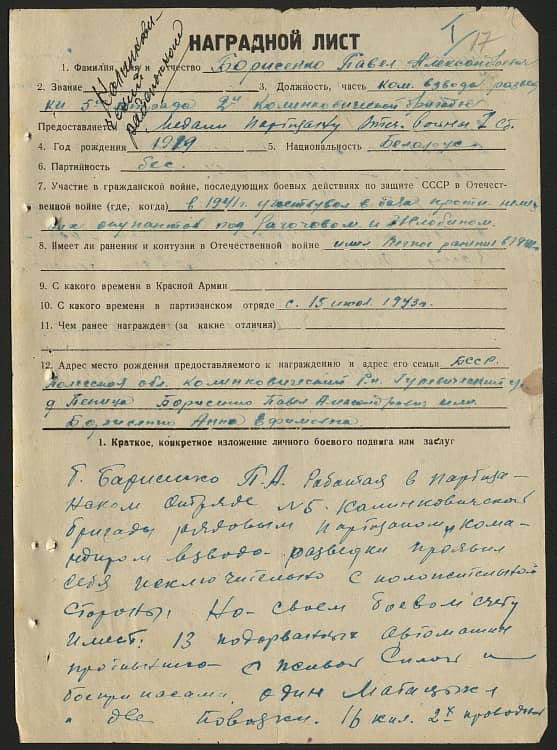 Калинкови-
ческий
районный
1/17
НАГРАДНОЙ ЛИСТ
1. Фамилия, имя и отчество Борисенко Павел Александрович
2. Звание 3. Должность, часть ком. взвода развед
ки 5го отряда 2й Калинковической бригады
Представляется Медали Партизану Отеч. войны I ст.
4. Год рождения 1919 5. Национальность Белорус
6. Партийность бес.
7. Участие в гражданской войне, последующих боевых действиях по защите СССР в Отечест-
венной войне (где, когда) в 1941г. участвовал в боях против немец
ких окупантов под Рагочовом и Жлобином.
8. Имеет ли ранения и контузии в Отечественной войне имел легкое ранение в
9. С какого времени в Красной Армии
10. С какого времени в партизанском отряде с 15 июля 1943г.
11. Чем ранее награжден (за какие отличия)
12. Адрес место рождения предоставляемого к награждению и адрес его семьи БССР
Полесская обл. Калинковический Рн.
д Борисенко Павел Александрович
Борисенко Анна Ефимовна
1. Краткое, конкретное изложение личного боевого подвига или заслуг
Т. Барисенко П.А. Работая в партиза-
нском Отряде №5. Калинковической
бригады рядовым партизаном, кома-
ндиром взвода разведки проявил
себя исключительно с положительной
стороны. На своем боевом счету
Имеет. 13 подорванных автомашин
противника с живой силой и
боеприпасами, один Матацыкл
и две Повозки. 16 кил. 2х проводной